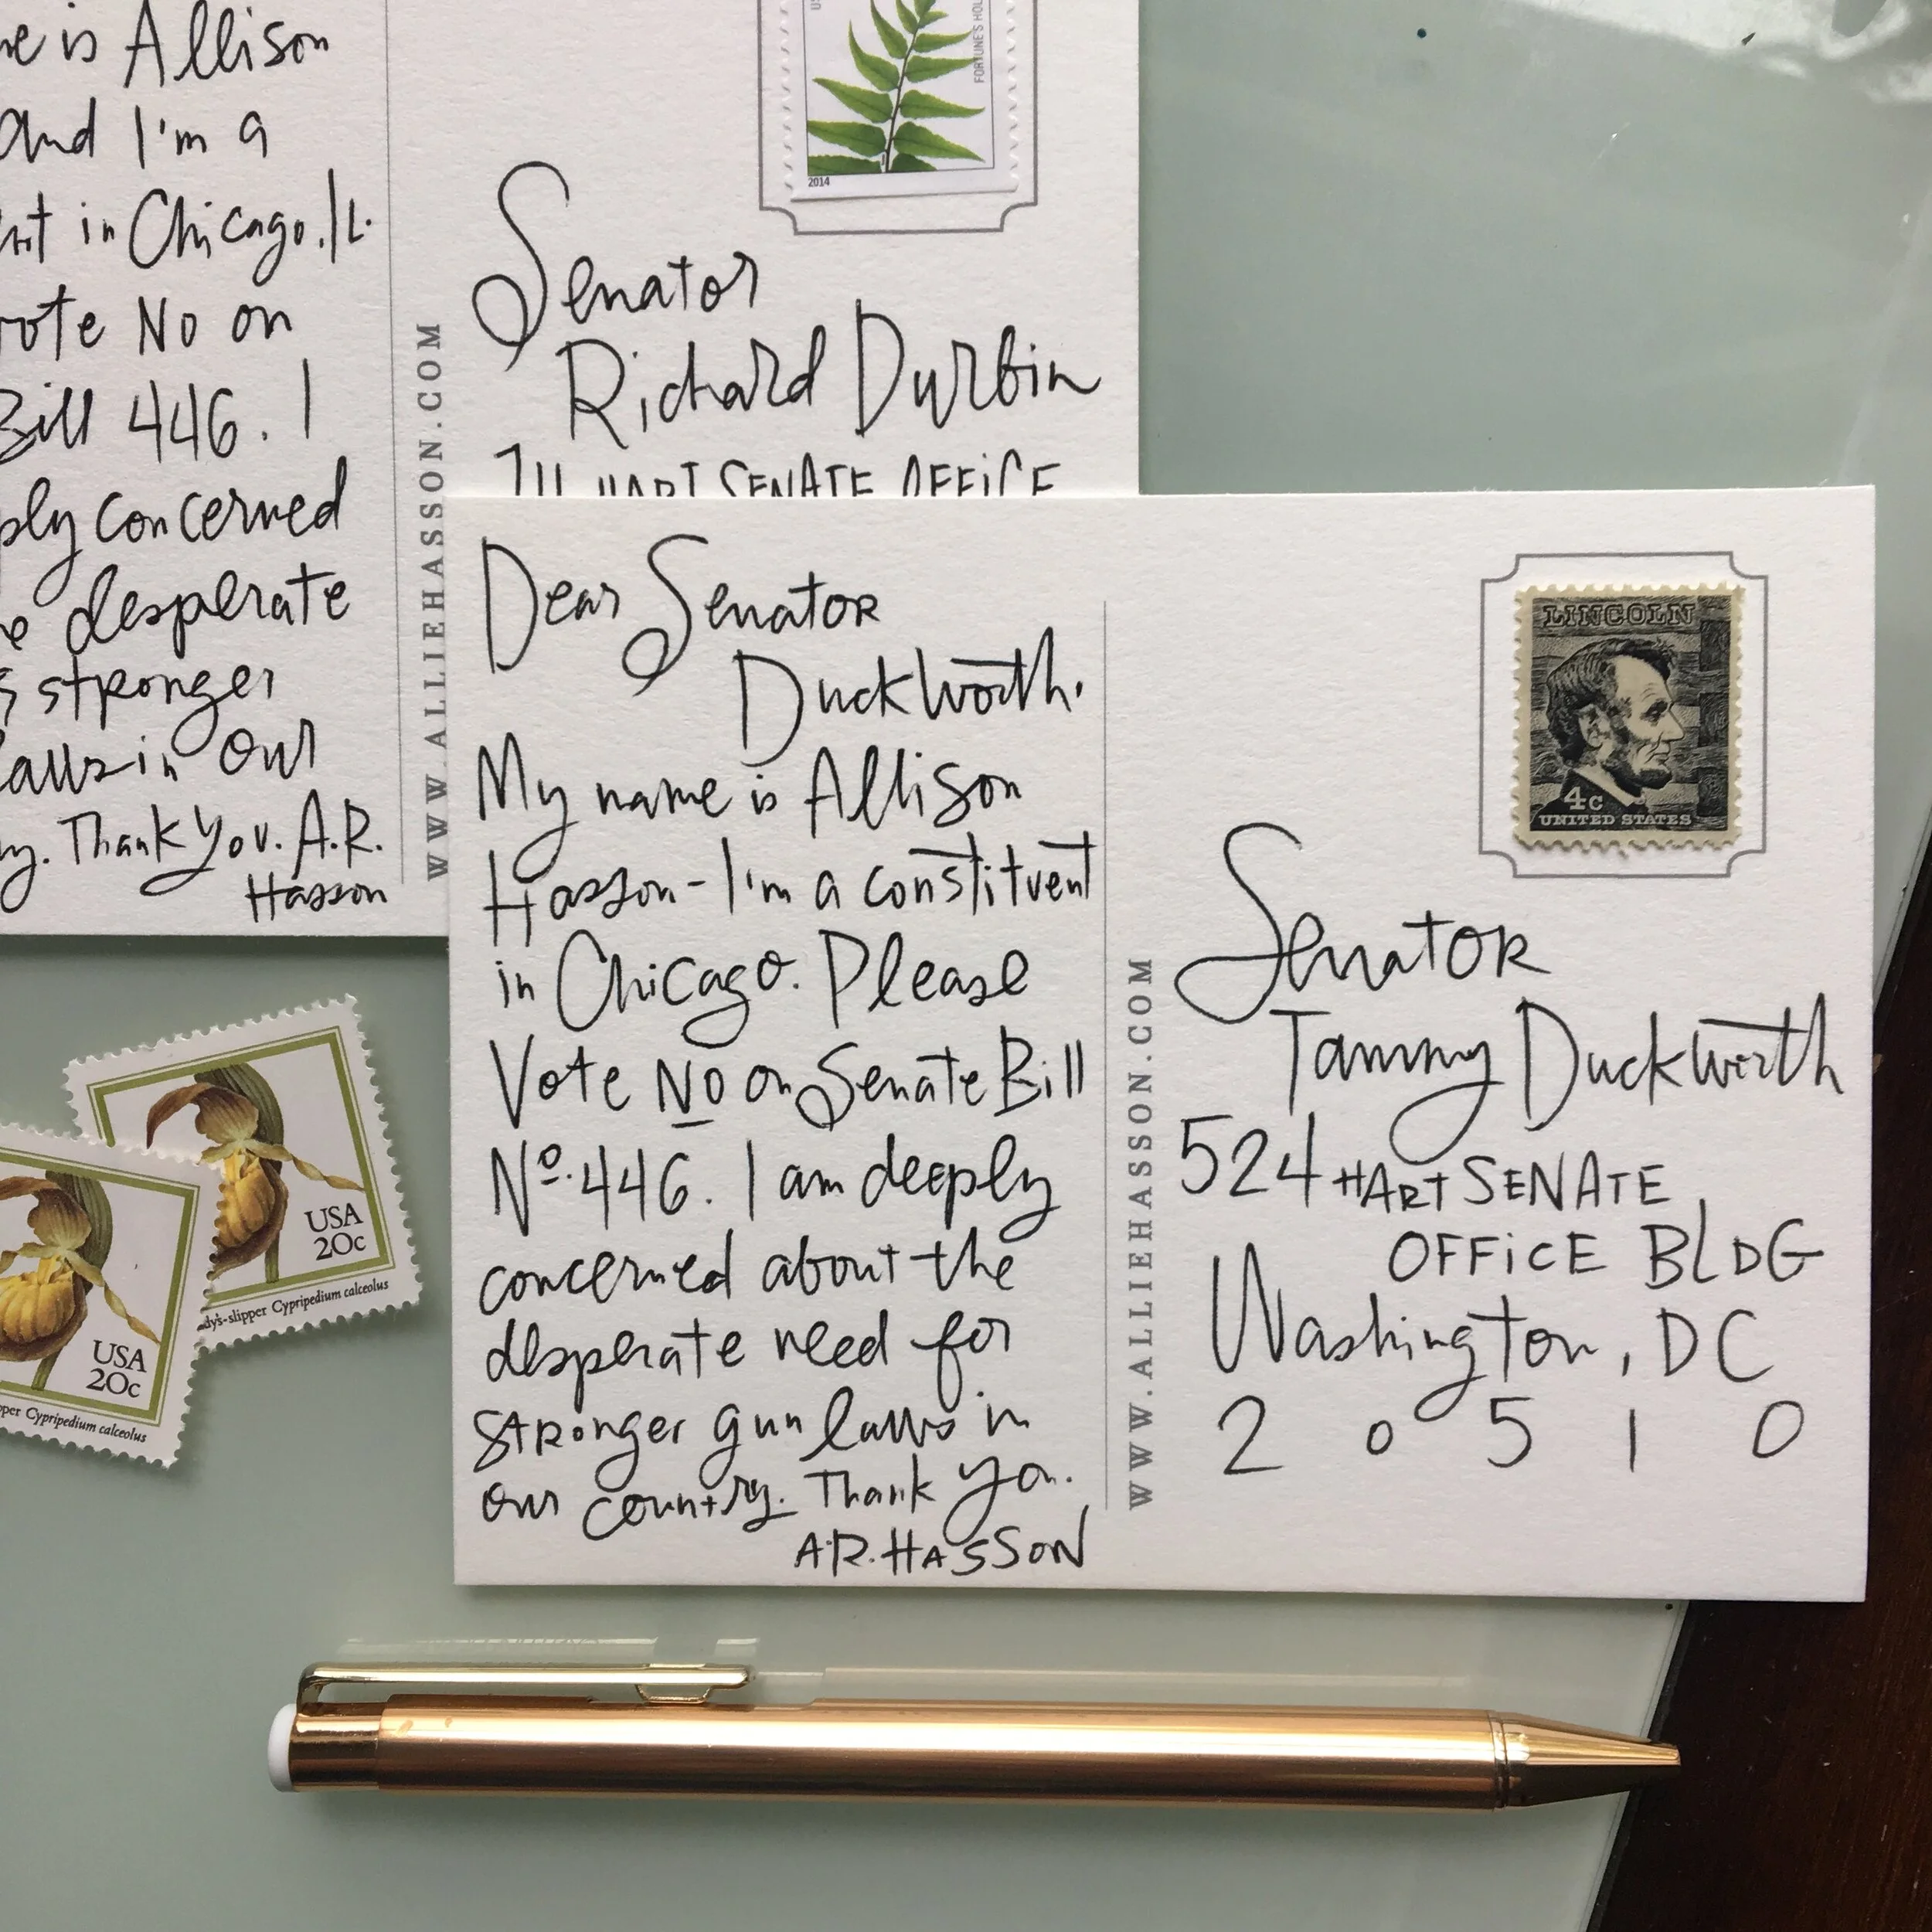 is Allison
and I'm a
in Chicago. IL.
vote No on
Bill 446. I
concerned
desperate
stronger
laws in our
Thank you. A.R.
Hasson
WWW.ALLIEHASSON.COM
FORTUNE'S HOL
2014
Senator
Richard Durbin
711 HART SENATE OFFICE
Dear Senator
Duckworth.
My name is Allison
Hasson - I'm a constituent
in Chicago. Please
Vote No on Senate Bill
Nº. 446. I am deeply
concerned about the
desperate need for
stronger gun laws in
our country. Thank you.
A.R. HASSON
WWW.ALLIEHASSON.COM
LINCOLN
4c
UNITED STATES
Senator
Tammy Duckworth
524 HART SENATE
OFFICE BLDG
Washington, DC
2 0 5 1 0
USA
20c
dy's-slipper Cypripedium calceolus
USA
20c
pper Cypripedium calceolus